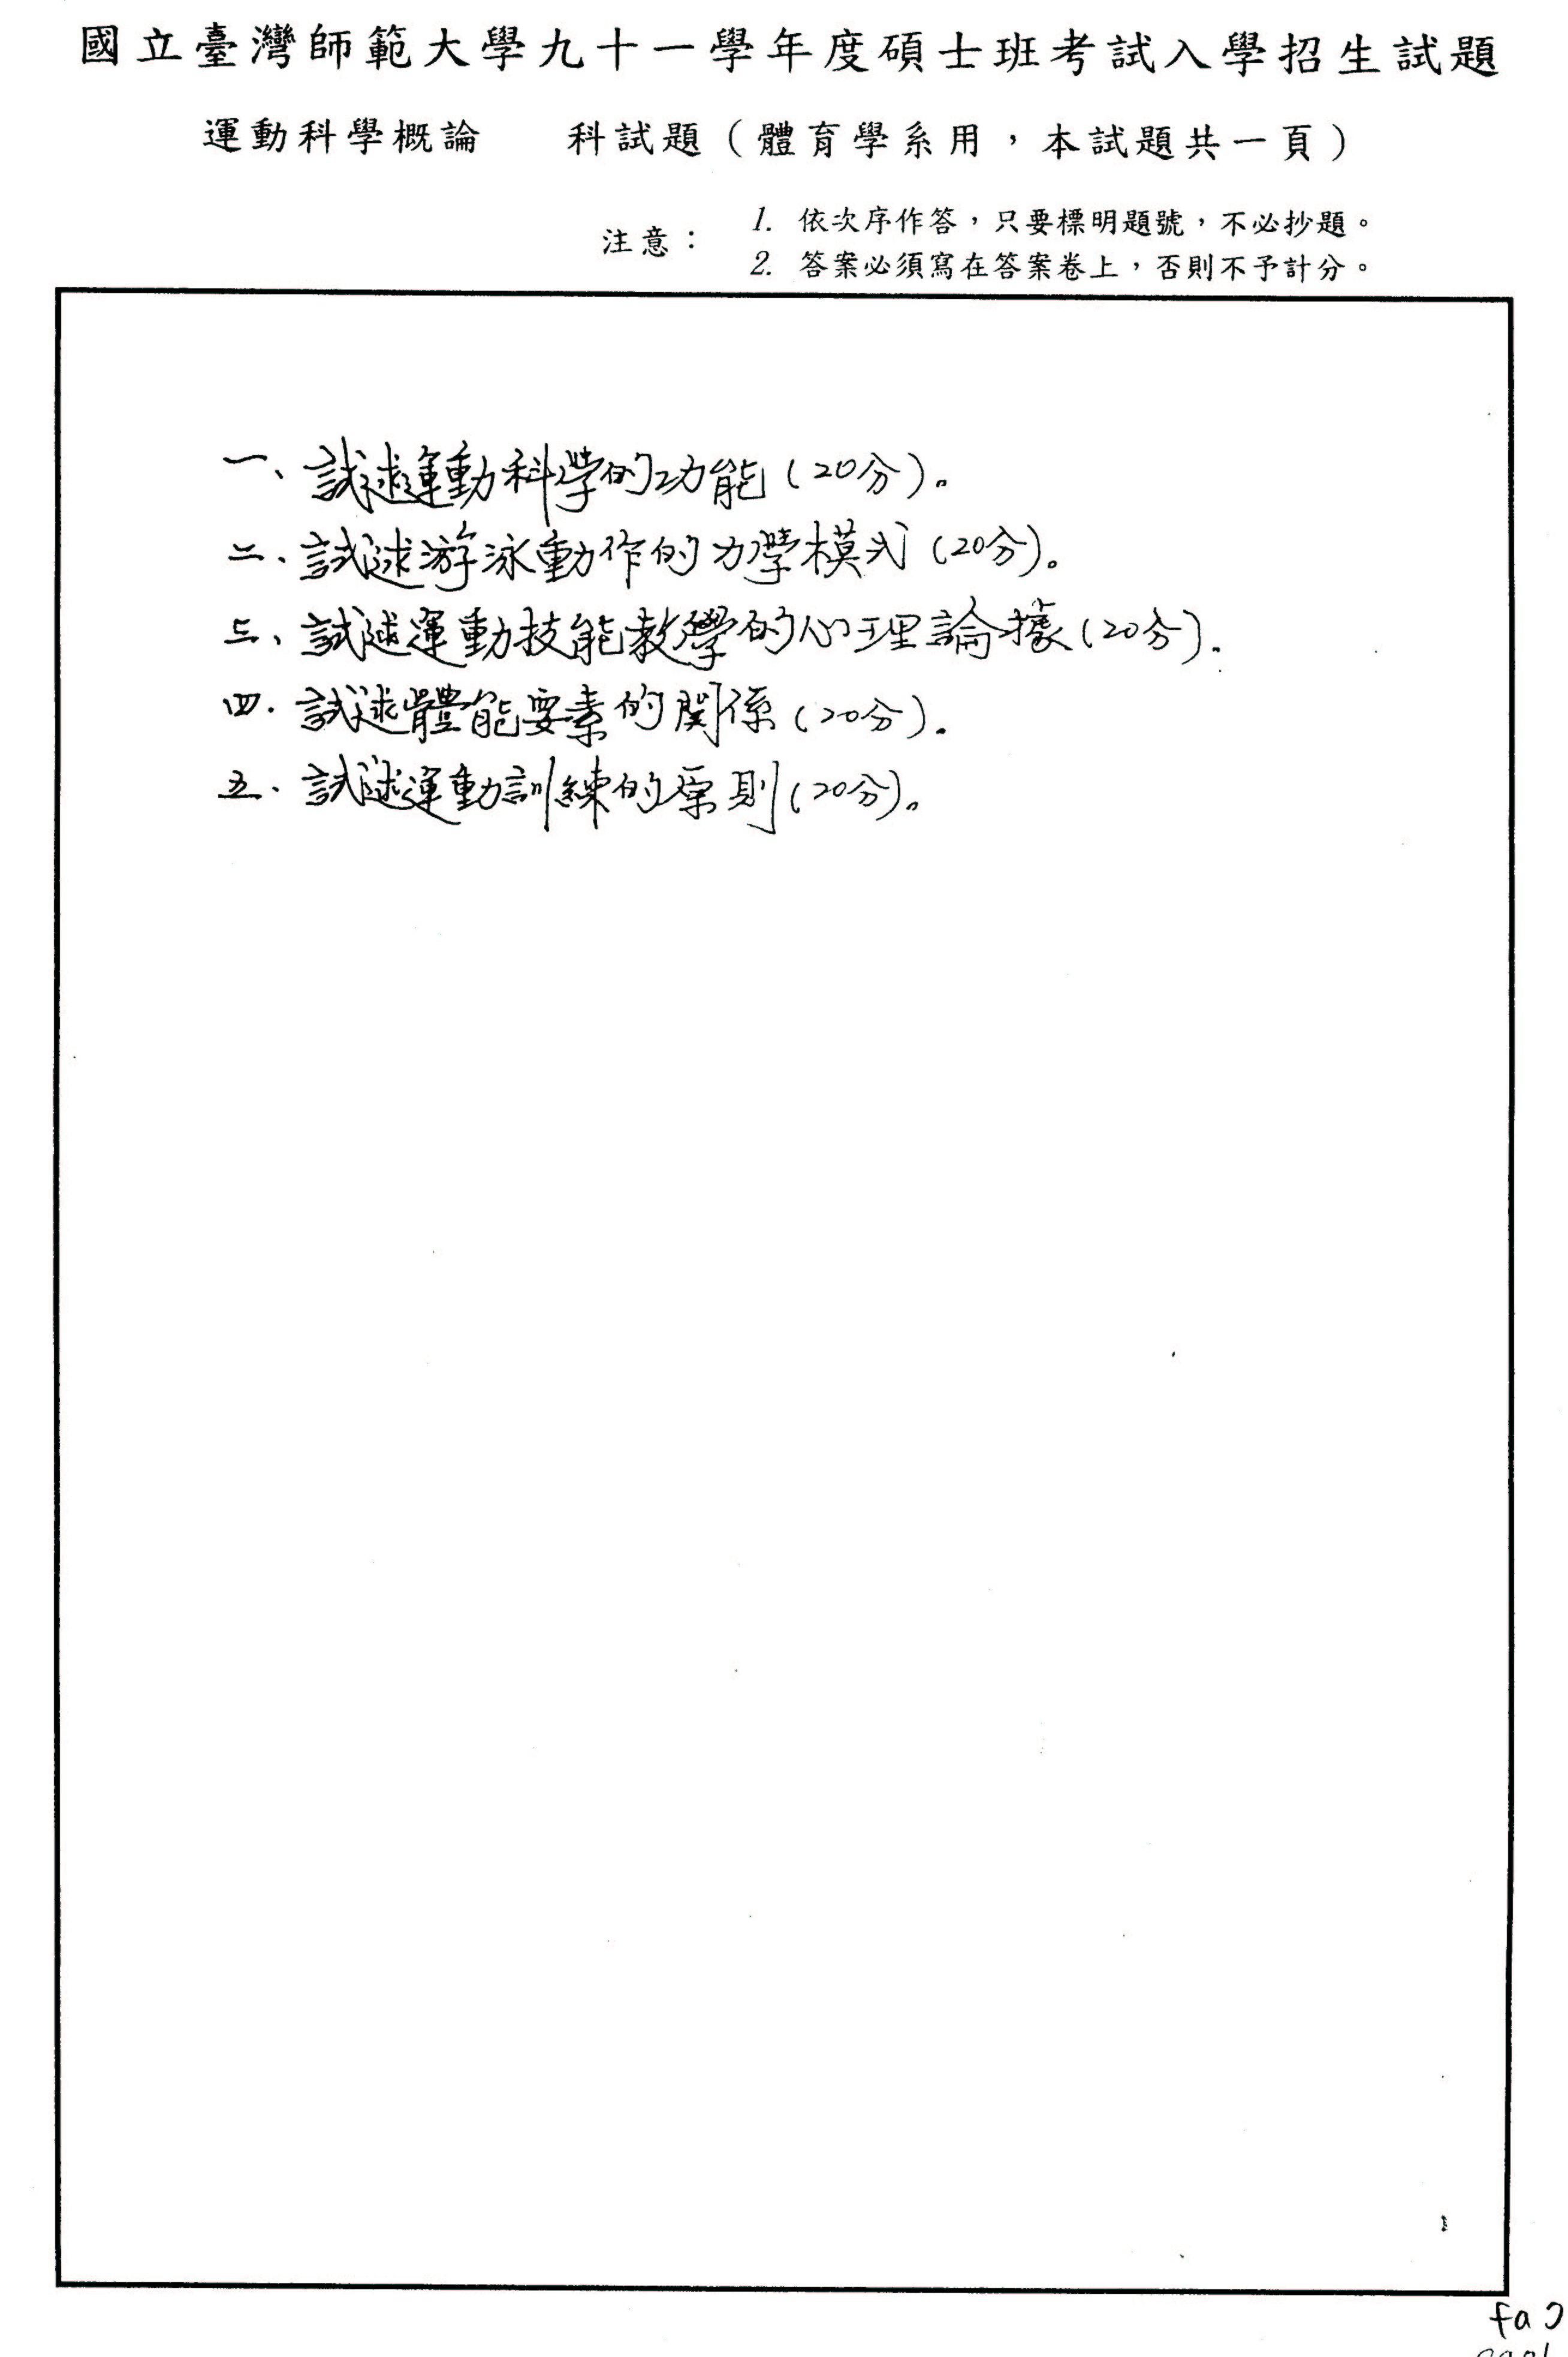 國立臺灣師範大學九十一學年度碩士班考試入學招生試題
運動科學概論 科試題（體育學系用，本試題共一頁）
注意： 1. 依次序作答，只要標明題號，不必抄題。
2. 答案必須寫在答案卷上，否則不予計分。
一、試述運動科學的功能(20分)。
二、試述游泳動作的力學模式(20分)。
三、試述運動技能教學的心理論據(20分).
四.試述體能要素的関係(20分).
五.試述運動訓練的原則(20分)。